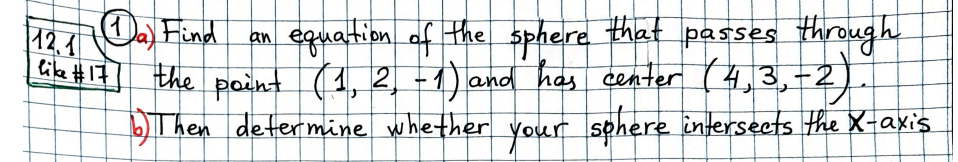 12.1
like #17
1 a) Find an equation of the sphere that passes through
the point (1, 2, -1) and has center (4, 3, -2).
b) Then determine whether your sphere intersects the X-axis